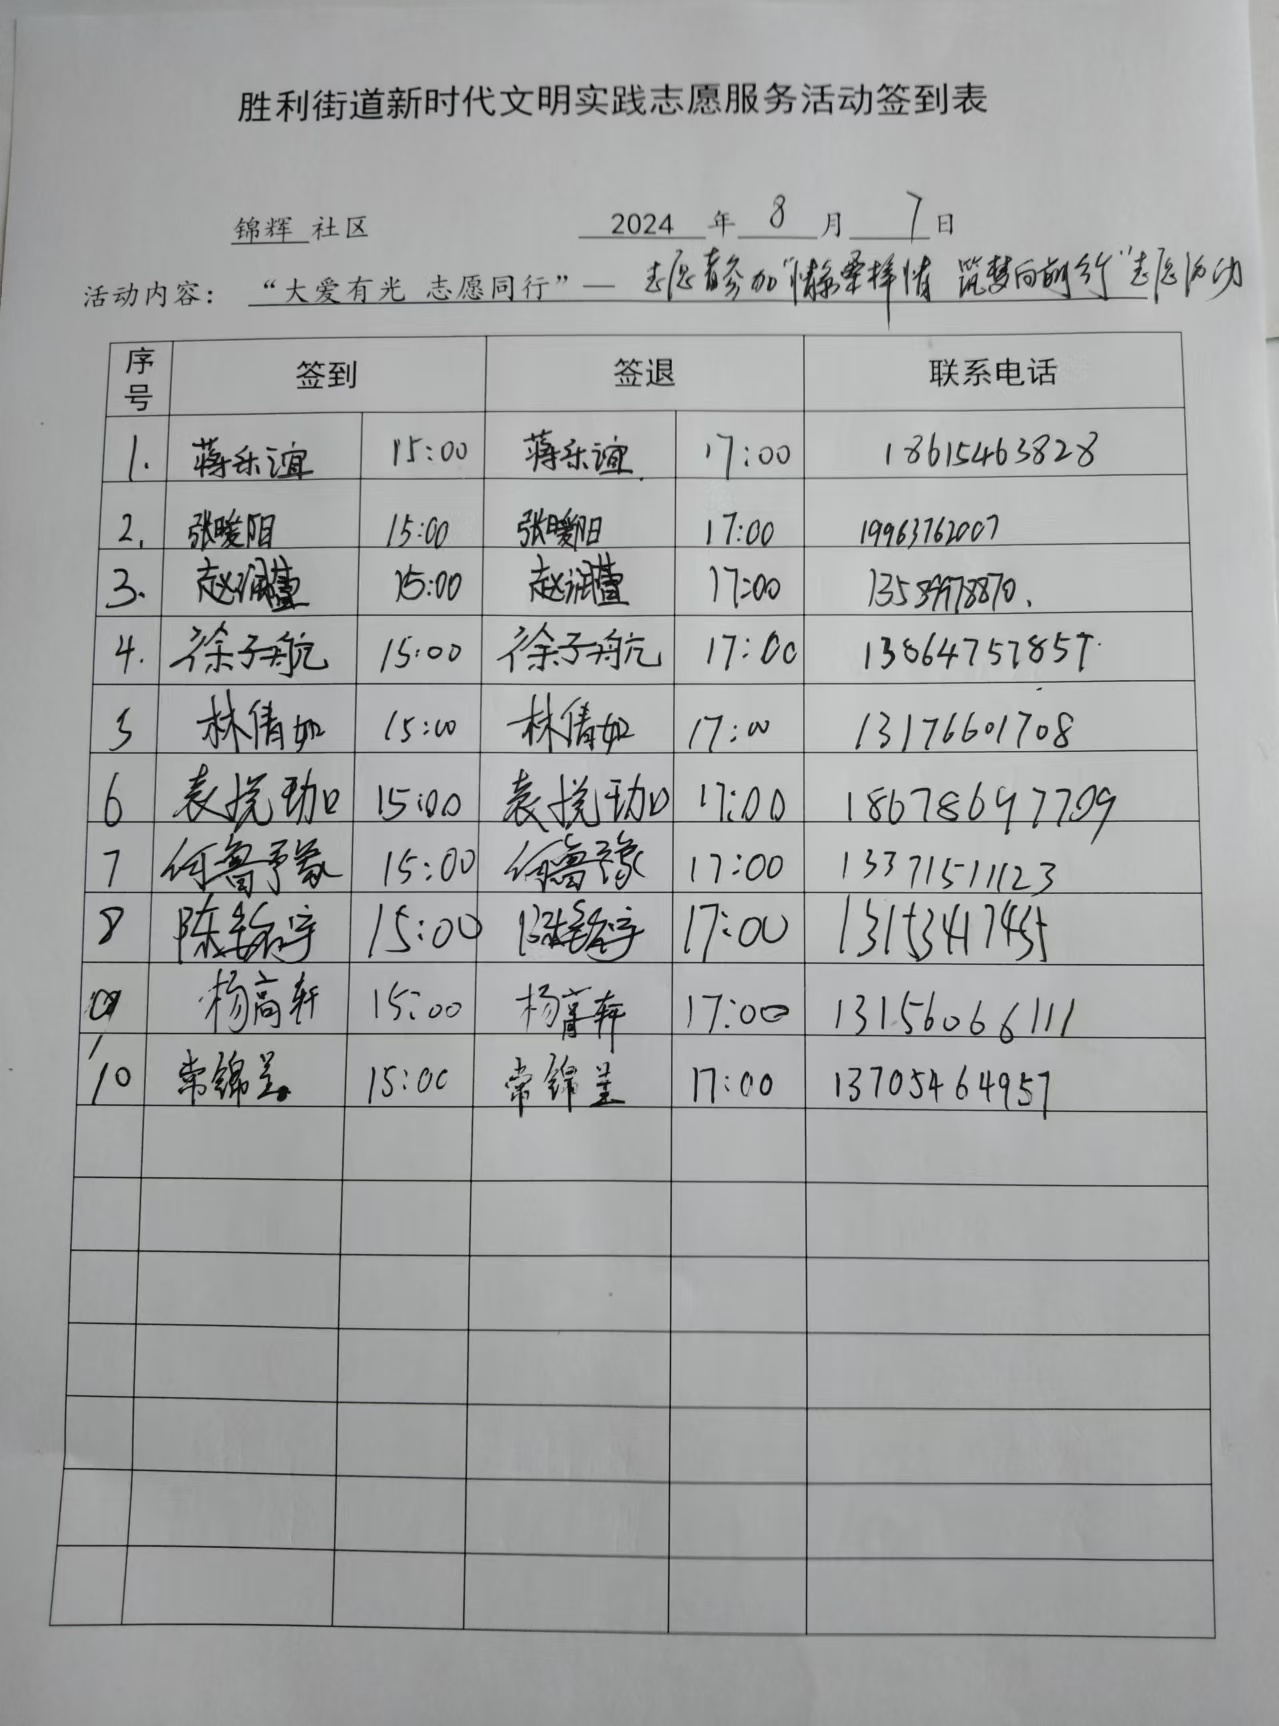 胜利街道新时代文明实践志愿服务活动签到表
锦辉 社区 2024 年 8 月 7 日
活动内容： “大爱有光 志愿同行”— 志愿者参加“情系桑梓情 筑梦向前行”志愿活动
序号 签到 签退 联系电话
1. 蒋乐谊 15:00 蒋乐谊 17:00 18615463828
2. 张暖阳 15:00 张暖阳 17:00 19963762007
3. 赵润萱 15:00 赵润萱 17:00 13589978870.
4. 徐子航 15:00 徐子航 17:00 13864757857
5 林倩如 15:00 林倩如 17:00 13176601708
6 袁悦珈 15:00 袁悦珈 17:00 18678697709
7 何鲁予蒙 15:00 何鲁豫 17:00 13371511123
8 陈 宇 15:00 陈 宇 17:00 13153417455
杨高轩 15:00 杨高轩 17:00 13156066111
10 常锦 15:00 常锦 17:00 13705464957